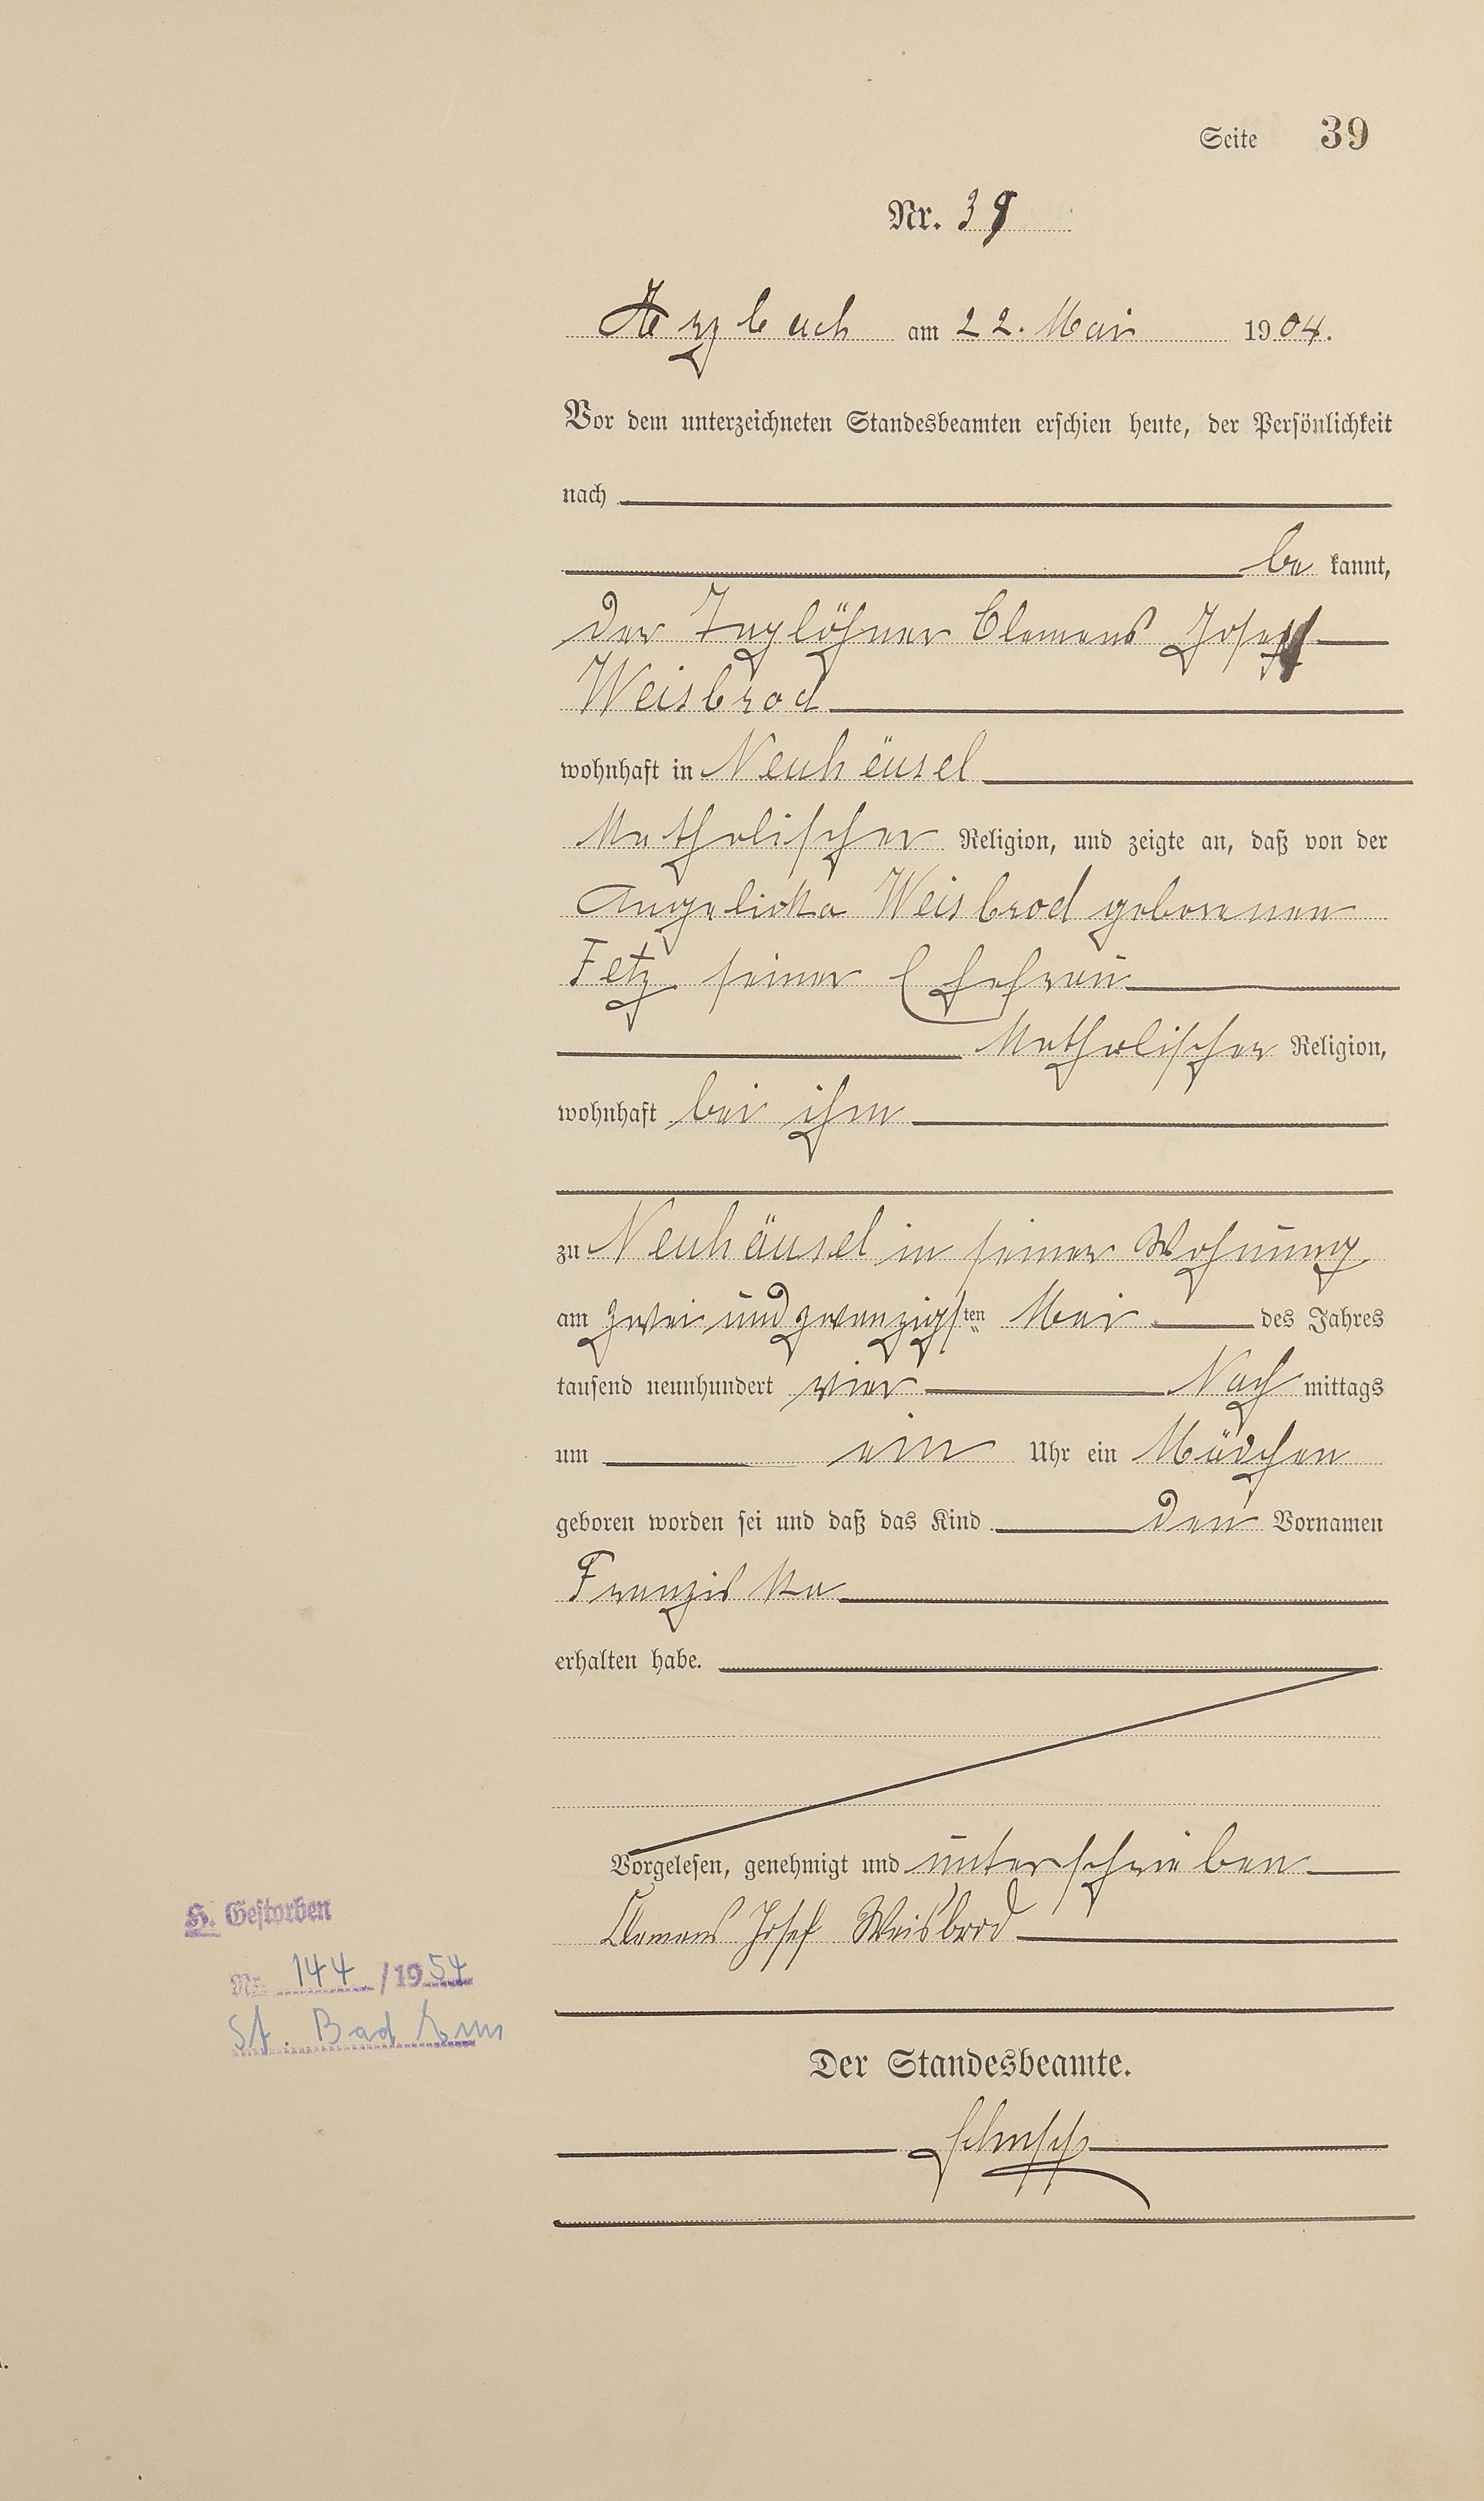 Seite 39
Nr. 39
Arzbach am 22. Mai 1904.
Vor dem unterzeichneten Standesbeamten erschien heute, der Persönlichkeit
nach
be kannt,
der Taglöhner Clemens Josef
Weisbrod
wohnhaft in Neuhäusel
katholischer Religion, und zeigte an, daß von der
Angelicka Weisbrod geborenen
Fetz seiner Ehefrau
katholischer Religion,
wohnhaft bei ihm
zu Neuhäusel in seiner Wohnung
am zwei und zwanzigsten Mai des Jahres
tausend neunhundert vier Nach mittags
um ein Uhr ein Mädchen
geboren worden sei und daß das Kind den Vornamen
Franziska
erhalten habe.
Vorgelesen, genehmigt und unterschrieben
Clemens Josef Weisbrod
H. Gestorben
Nr. 144 / 1954
St. Bad Ems
Der Standesbeamte.